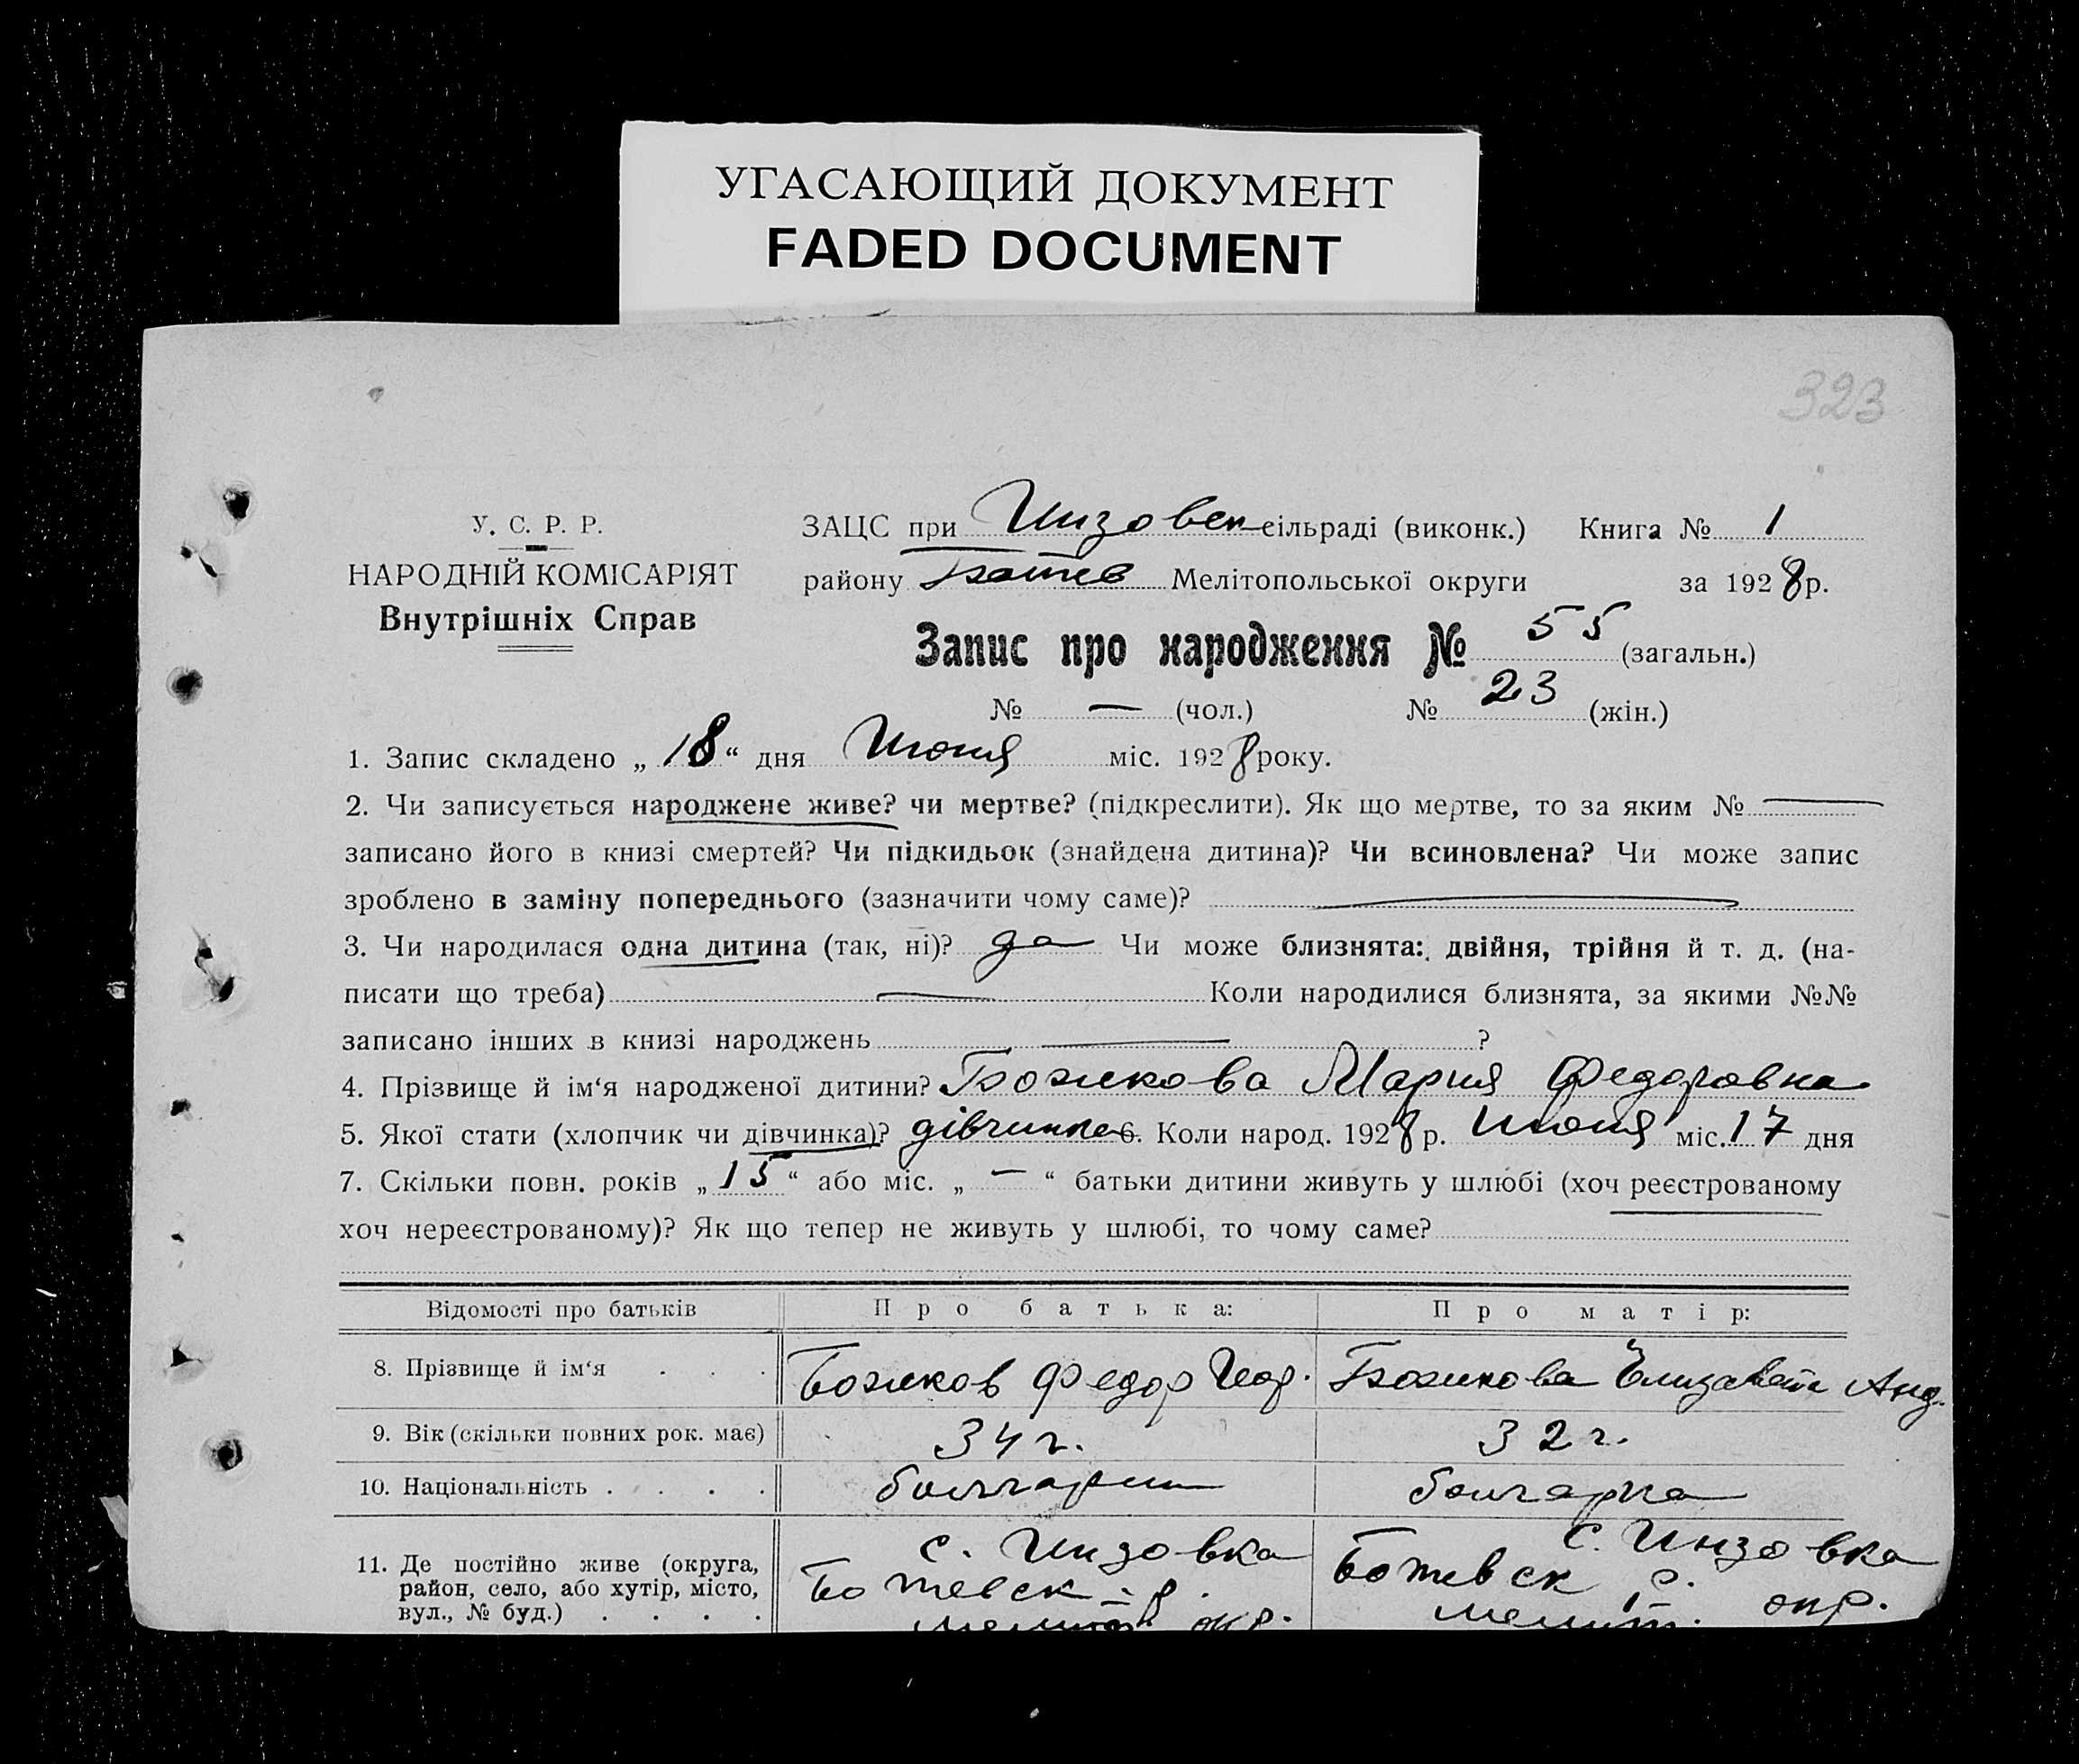 УГАСАЮЩИЙ ДОКУМЕНТ
FADED DOCUMENT
323
У. С. Р. Р.
НАРОДНІЙ КОМІСАРІЯТ
Внутрішніх Справ
ЗАЦС при Инзовск сільраді (виконк.) Книга № 1
району Ботев Мелітопольської округи за 1928 р.
Запис про народження № 55 (загальн.)
№ — (чол.) № 23 (жін.)
1. Запис складено „18“ дня Июня міс. 1928 року.
2. Чи записується народжене живе? чи мертве? (підкреслити). Як що мертве, то за яким № —
записано його в книзі смертей? Чи підкидьок (знайдена дитина)? Чи всиновлена? Чи може запис
зроблено в заміну попереднього (зазначити чому саме)? —
3. Чи народилася одна дитина (так, ні)? да Чи може близнята: двійня, трійня й т. д. (на-
писати що треба) — Коли народилися близнята, за якими №№
записано інших в книзі народжень — ?
4. Прізвище й ім‘я народженої дитини? Божкова Мария Федоровна
5. Якої стати (хлопчик чи дівчинка)? дівчинка 6. Коли народ. 1928 р. Июня міс. 17 дня
7. Скільки повн. років „15“ або міс. „—“ батьки дитини живуть у шлюбі (хоч реєстрованому
хоч нереєстрованому)? Як що тепер не живуть у шлюбі, то чому саме?
Відомості про батьків Про батька: Про матір:
8. Прізвище й ім‘я . . . Божков Федор Геор. Божкова Елизавета Анд.
9. Вік (скільки повних рок. має) 34 г. 32 г.
10. Національність . . . . болгарин болгарка
11. Де постійно живе (округа, с. Инзовка с. Инзовка
район, село, або хутір, місто, Ботевск р. Ботевск р.
вул., № буд.) . . . . Мелит. окр. Мелит. окр.